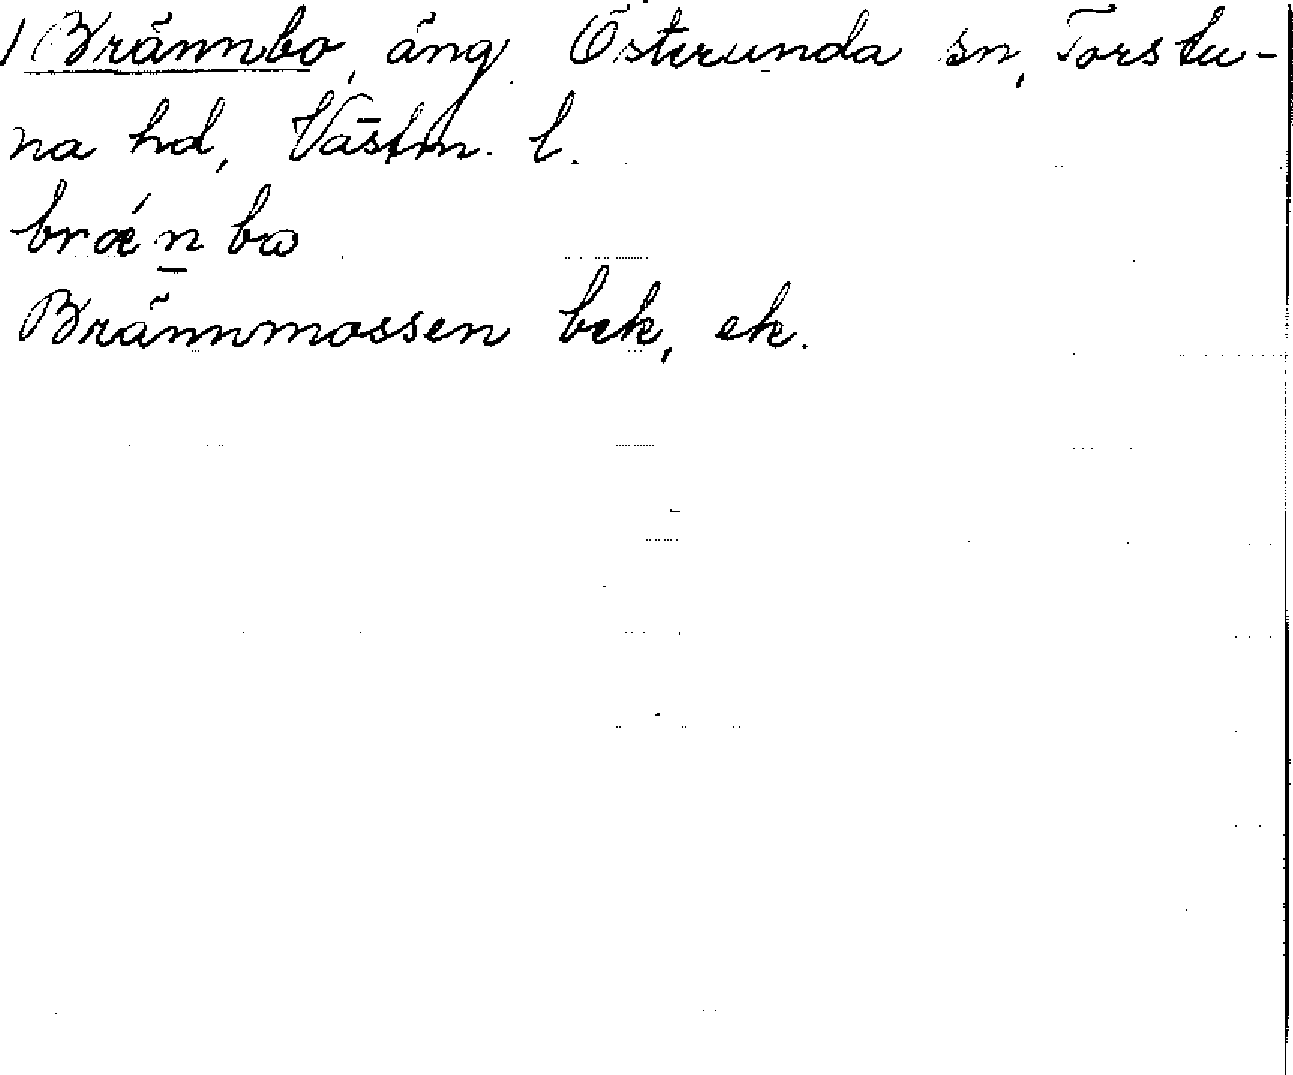 1 Brännbo, äng. Österunda sn, Torstu-
na hd, Västm. l.
brǽn̲bω
Brännmossen bek, ek.